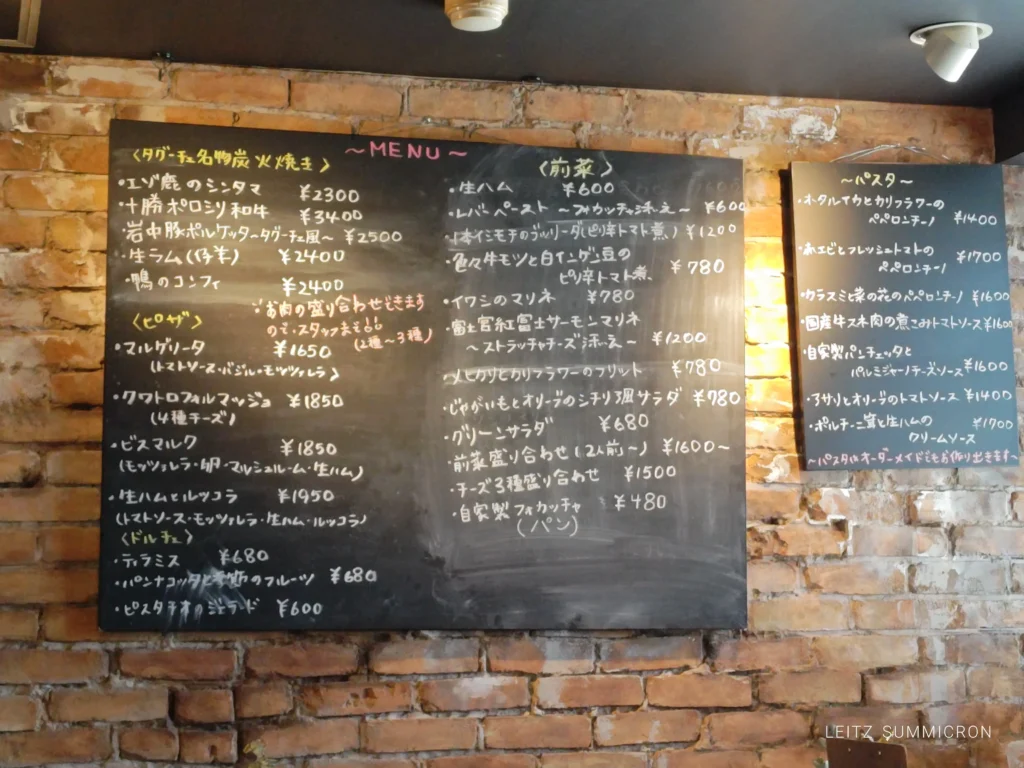 〜MENU〜
〈タグーチェ名物炭火焼き〉
・エゾ鹿のシンタマ ¥2300
・十勝ポロシリ和牛 ¥3400
・岩中豚ポルケッタ〜タグーチェ風〜 ¥2500
・生ラム(仔羊) ¥2400
・鴨のコンフィ ¥2400
お肉の盛り合わせできます
ので、スタッフまで!!
(2種〜3種)
〈ピザ〉
・マルゲリータ ¥1650
(トマトソース・バジル・モッツァレラ)
・クワトロフォルマッジョ ¥1850
(4種チーズ)
・ビスマルク ¥1850
(モッツァレラ・卵・マッシュルーム・生ハム)
・生ハムとルッコラ ¥1950
(トマトソース・モッツァレラ・生ハム・ルッコラ)
〈ドルチェ〉
・ティラミス ¥680
・パンナコッタと季節のフルーツ ¥680
・ピスタチオの ¥600
〈前菜〉
・生ハム ¥600
・レバーペースト 〜フォカッチャ添え〜 ¥600
イシモチの (ピリ辛トマト煮) ¥1200
・色々牛モツと白インゲン豆の
ピリ辛トマト煮 ¥780
・イワシのマリネ ¥780
・富士宮紅富士サーモンマリネ
〜ストラッチャチーズ添え〜 ¥1200
・メヒカリとカリフラワーのフリット ¥780
・じゃがいもとオリーブのシチリア風サラダ ¥780
・グリーンサラダ ¥680
・前菜盛り合わせ(2人前〜) ¥1600〜
・チーズ3種盛り合わせ ¥1500
・自家製フォカッチャ ¥480
(パン)
〜パスタ〜
・ホタルイカとカリフラワーの
ペペロンチーノ ¥1400
・赤エビとフレッシュトマトの
ペペロンチーノ ¥1700
・カラスミと菜の花のペペロンチーノ ¥1600
・国産牛スネ肉の煮こみトマトソース ¥1600
・自家製パンチェッタと
パルミジャーノチーズソース ¥1600
・アサリとオリーブのトマトソース ¥1400
・ポルチーニ茸と生ハムの
クリームソース ¥1700
〜パスタはオーダーメイドでもお作り出きます〜
LEITZ SUMMICRON